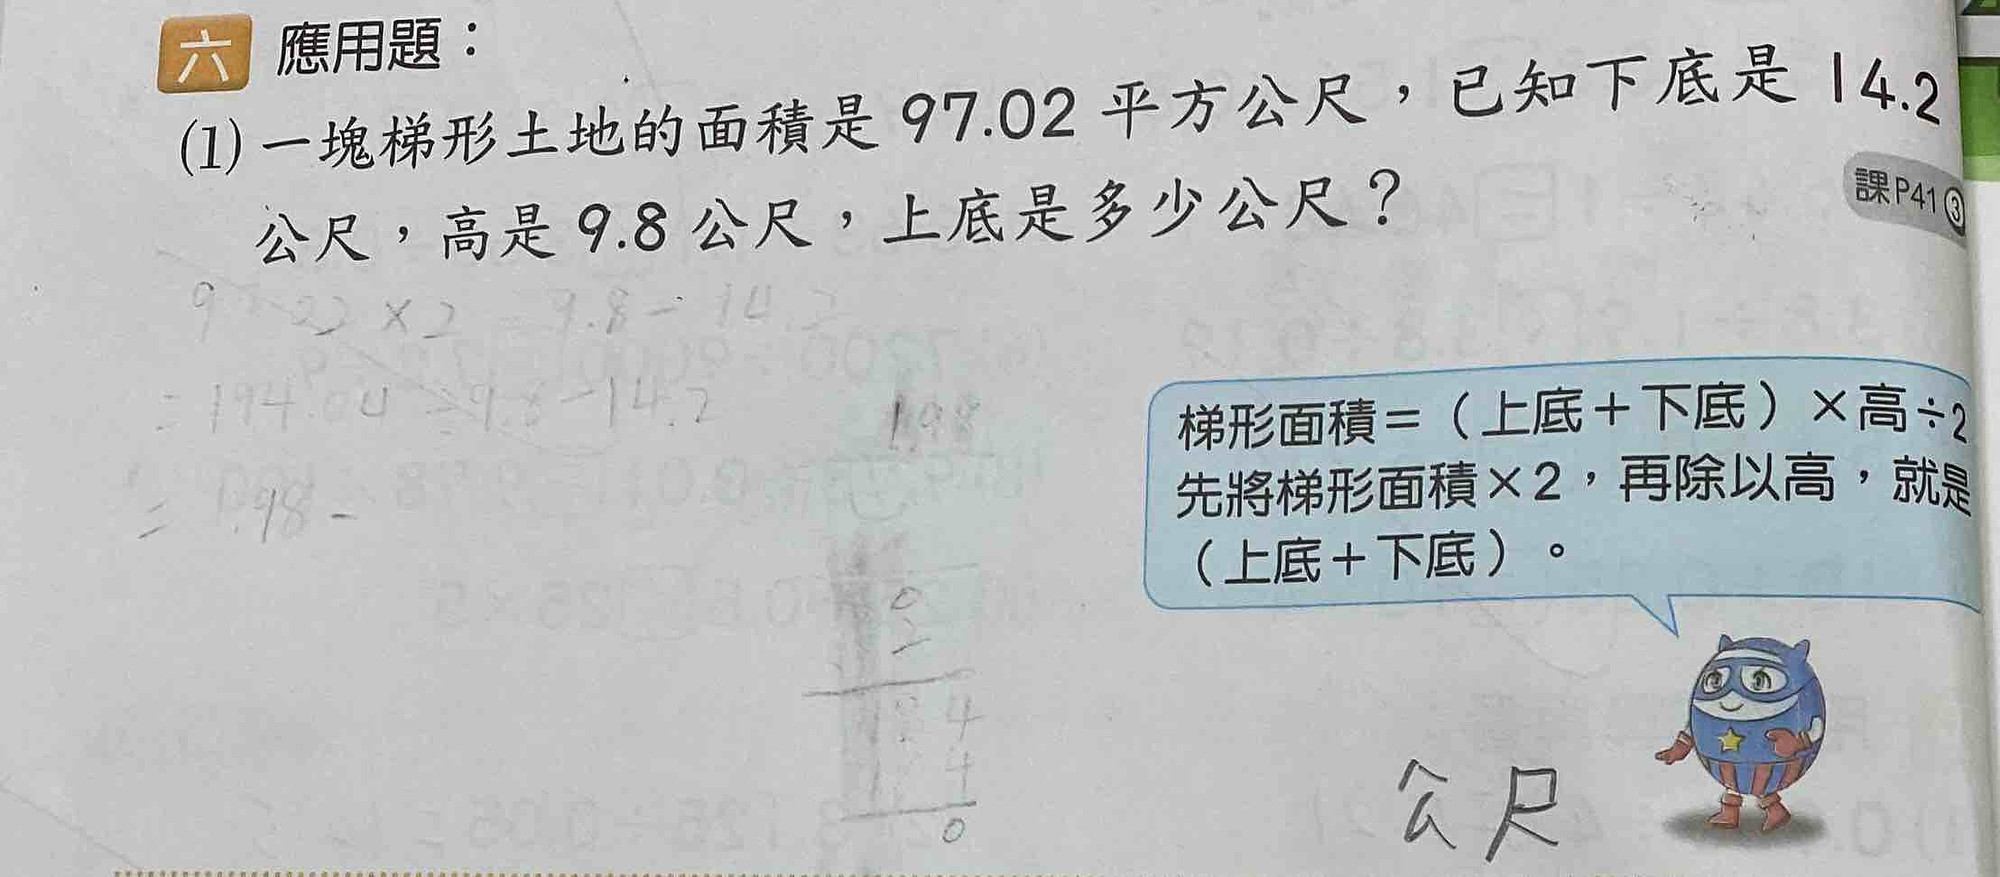 六 應用題：
(1) 一塊梯形土地的面積是 97.02 平方公尺，已知下底是 14.2
公尺，高是 9.8 公尺，上底是多少公尺？
課P41③
× 2 9.8 - 14.2
= 194.04 ÷ 9.8 - 14.2
198
梯形面積＝（上底＋下底）×高÷2
先將梯形面積×2，再除以高，就是
（上底＋下底）。
0
4
4
0
公尺